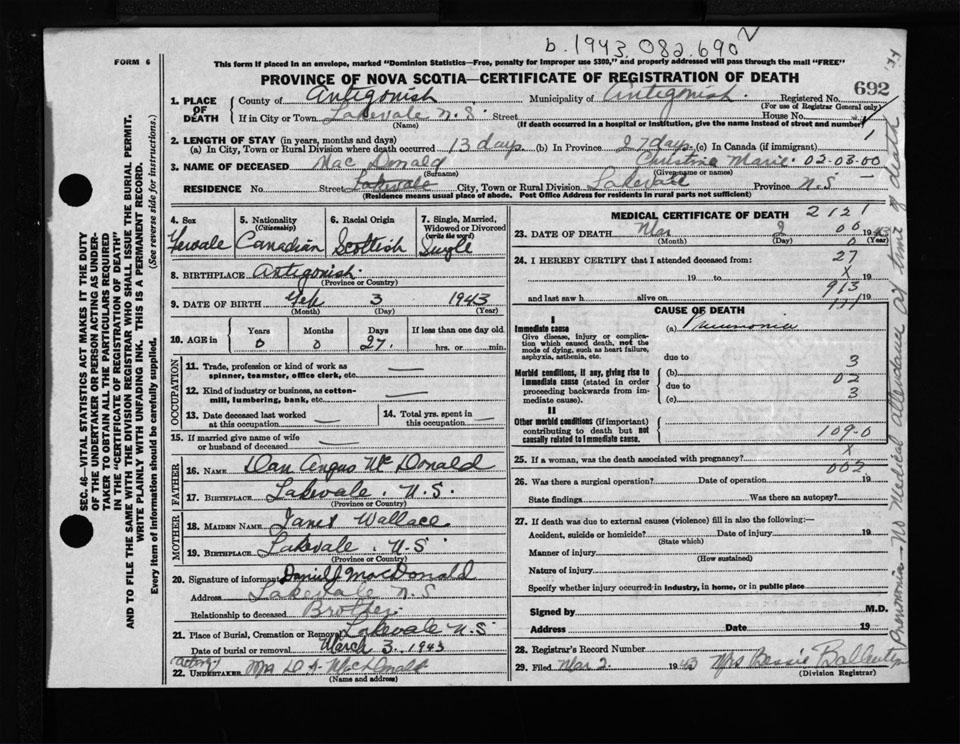 b. 1943. 082.690
FORM 6
This form if placed in an envelope, marked "Dominion Statistics—Free, penalty for improper use $300," and properly addressed will pass through the mail "FREE"
PROVINCE OF NOVA SCOTIA—CERTIFICATE OF REGISTRATION OF DEATH
692
1. PLACE OF DEATH County of Antigonish Municipality of Antigonish. Registered No.
(For use of Registrar General only)
If in City or Town Lakevale N.S. Street House No.
(Name) (If death occurred in a hospital or institution, give the name instead of street and number)
2. LENGTH OF STAY (in years, months and days)
(a) In City, Town or Rural Division where death occurred 13 days (b) In Province 27 days (c) In Canada (if immigrant)
3. NAME OF DECEASED Mac Donald Christine Marie 02-03-00
(Surname) (Given name or names)
RESIDENCE No. Street Lakevale City, Town or Rural Division Lakevale Province N.S
(Residence means usual place of abode. Post Office Address for residents in rural parts not sufficient)
4. Sex Female
5. Nationality (Citizenship) Canadian
6. Racial Origin Scottish
7. Single, Married, Widowed or Divorced (write the word) Single
8. BIRTHPLACE Antigonish.
(Province or Country)
9. DATE OF BIRTH Feb 3 1943
(Month) (Day) (Year)
10. AGE in Years 0 Months 0 Days 27. If less than one day old hrs. or min.
OCCUPATION
11. Trade, profession or kind of work as spinner, teamster, office clerk, etc.
12. Kind of industry or business, as cotton-mill, lumbering, bank, etc.
13. Date deceased last worked at this occupation
14. Total yrs. spent in this occupation
15. If married give name of wife or husband of deceased
FATHER
16. NAME Dan Angus Mc Donald
17. BIRTHPLACE Lakevale. N.S.
(Province or Country)
MOTHER
18. MAIDEN NAME Janet Wallace
19. BIRTHPLACE Lakevale. N.S
(Province or Country)
20. Signature of informant Daniel J MacDonald
Address Lakevale N.S
Relationship to deceased Brother.
21. Place of Burial, Cremation or Removal Lakevale N.S
Date of burial or removal March 3. 1943
(acting)
22. UNDERTAKER Mrs D A MacDonald
(Name and address)
MEDICAL CERTIFICATE OF DEATH 2121
23. DATE OF DEATH Mar 2 1943
(Month) (Day) (Year)
24. I HEREBY CERTIFY that I attended deceased from: 27
19 to X 19
and last saw h alive on 913 19
111
CAUSE OF DEATH
I
Immediate cause (a) Pneumonia
Give disease, injury or complication which caused death, not the mode of dying, such as heart failure, asphyxia, asthenia, etc.
due to 3
Morbid conditions, if any, giving rise to immediate cause (stated in order proceeding backwards from immediate cause).
(b) 02
due to 3
(c)
II
Other morbid conditions (if important) contributing to death but not causally related to immediate cause.
109.0
25. If a woman, was the death associated with pregnancy? X
002
26. Was there a surgical operation? Date of operation 19
State findings Was there an autopsy?
27. If death was due to external causes (violence) fill in also the following:—
Accident, suicide or homicide? Date of injury 19
(State which)
Manner of injury
(How sustained)
Nature of injury
Specify whether injury occurred in industry, in home, or in public place
Signed by M.D.
Address Date 19
28. Registrar's Record Number
29. Filed Mar 2. 1943 Mrs Bessie Ballentyn
(Division Registrar)
Pneumonia—No Medical attendance at time of death
SEC. 46—VITAL STATISTICS ACT MAKES IT THE DUTY
OF THE UNDERTAKER OR PERSON ACTING AS UNDER-
TAKER TO OBTAIN ALL THE PARTICULARS REQUIRED
IN THE "CERTIFICATE OF REGISTRATION OF DEATH"
AND TO FILE THE SAME WITH THE DIVISION REGISTRAR WHO SHALL ISSUE THE BURIAL PERMIT.
WRITE PLAINLY WITH UNFADING INK. THIS IS A PERMANENT RECORD.
Every item of information should be carefully supplied. (See reverse side for instructions.)